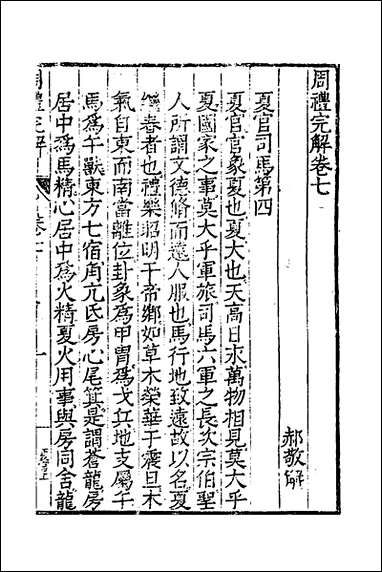 周禮完解卷七
郝敬解
夏官司馬第四
夏官官象夏也夏大也天高日永萬物相見莫大乎
夏國家之事莫大乎軍旅司馬六軍之長次宗伯聖
人所謂文德脩而遠人服也馬行地致遠故以名夏
繼春者也禮樂昭明于帝鄉如草木榮華于震旦木
氣自東而南當離位卦象為甲胄為戈兵地支屬午
馬為午獸東方七宿角亢氐房心尾箕是謂蒼龍房
居中為馬精心居中為火精夏火用事與房同舍龍
周禮完解
卷七
一